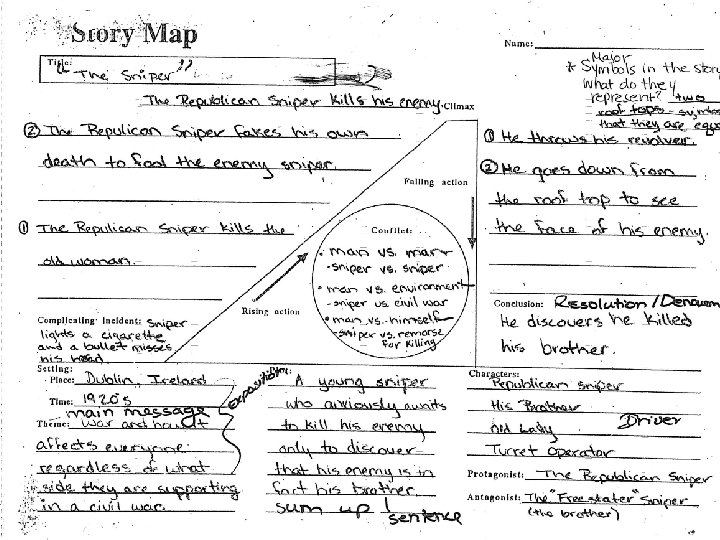 Story Map
Name:
Title:
"The Sniper"
* Major
Symbols in the story
What do they
represent? two
roof tops - symbo
that they are equa
The Republican Sniper kills his enemy. Climax
② The Repulican Sniper fakes his own
death to fool the enemy sniper.
① The Repulican Sniper kills the
old woman.
Rising action
Falling action
① He throws his revolver.
② He goes down from
the roof top to see
the face of his enemy.
Conflict:
• man vs. man
- sniper vs. sniper
• man vs. environment
- sniper vs civil war
• man vs. himself
- sniper vs. remorse
for killing
Complicating Incident: sniper
lights a cigarette
and a bullet misses
his head
Conclusion: Resolution/Denouem
He discovers he killed
his brother.
Setting:
Place: Dublin, Ireland
Time: 1920's
main message
Theme: war and
affects everyone
regardless of what
side they are supporting
in a civil war.
Exposition
A young sniper
who anxiously awaits
to kill his enemy
only to discover
that his enemy is in
fact his brother
sum up 1
sentence
Characters:
Republican sniper
His Brother
Old Lady
Driver
Turret Operator
Protagonist: The Republican Sniper
Antagonist: The "Free stater" Sniper
(the brother)